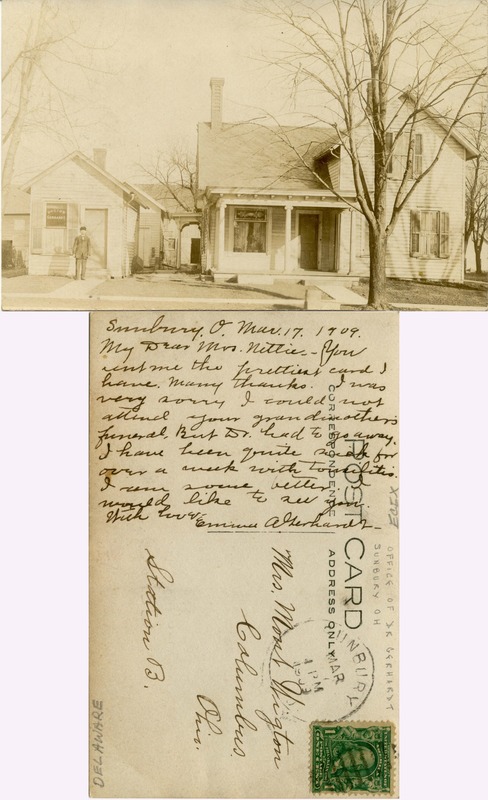 Sunbury, O. Mar. 17, 1909.
My Dear Mrs. Nettie:- You
sent me the prettiest card I
have. Many thanks. I was
very sorry I could not
attend your grandmothers
funeral, But Dr. had to go away.
I have been quite sick for
over a week with tonsilitis
I am some better.
would like to see you.
With love Emma A. Gerhardt
POST CARD
CORRESPONDENCE
ADDRESS ONLY
Mrs. Mont Wigton
Columbus
Ohio.
Station B.
SUNBURY
MAR
1 PM
1909
OFFICE OF DR GERHARDT
SUNBURY OH
DELAWARE
1